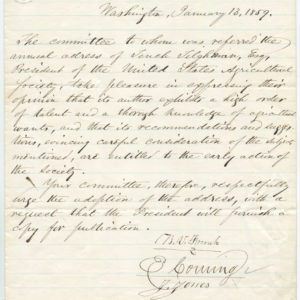 Washington, January 13, 1859.
The committee to whom was referred the
annual adress of Tench Tilghman, Esq,
President of the United States Agricultural
Society, take pleasure in expressing their
opinion that its author exhibits a high order
of talent and a thorough knowledge of agricultural
wants, and that its recommendations and sugges-
tions, evincing careful consideration of the
mentioned, are entitled to the early action of
the Society.
Your committee, therefor, respectfully
urge the adoption of the address, with a
request that the President will furnish a
copy for publication.
B. V. French
E. Corning Jr
J. Jones